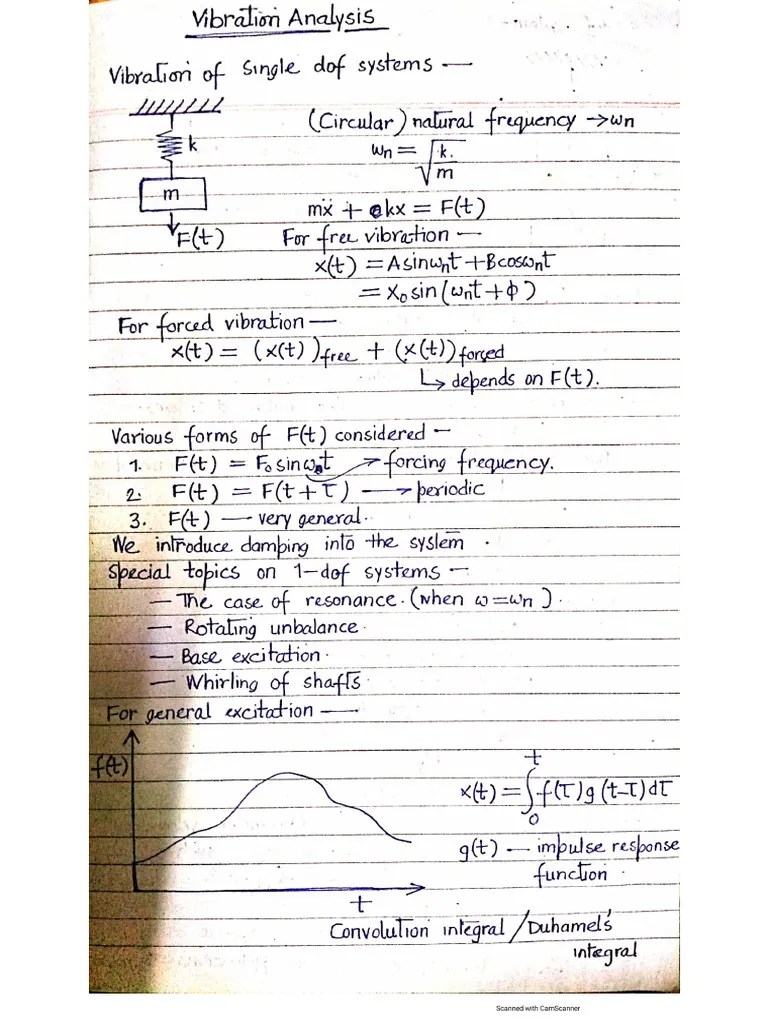 Vibration Analysis
Vibration of single dof systems —
k
m
F(t)
(Circular) natural frequency → ωn
ωn = √(k/m)
mẍ + kx = F(t)
For free vibration —
x(t) = A sin ωnt + B cos ωnt
= X₀ sin (ωnt + φ)
For forced vibration —
x(t) = (x(t))free + (x(t))forced
↳ depends on F(t).
Various forms of F(t) considered —
1. F(t) = F₀ sin ωt → forcing frequency.
2. F(t) = F(t + τ) → periodic
3. F(t) — very general.
We introduce damping into the system.
Special topics on 1-dof systems —
— The case of resonance. (when ω = ωn).
— Rotating unbalance.
— Base excitation.
— Whirling of shafts
For general excitation —
f(t)
t
x(t) = ∫₀ᵗ f(τ) g(t-τ) dτ
g(t) — impulse response
function.
Convolution integral / Duhamel's
integral
Scanned with CamScanner